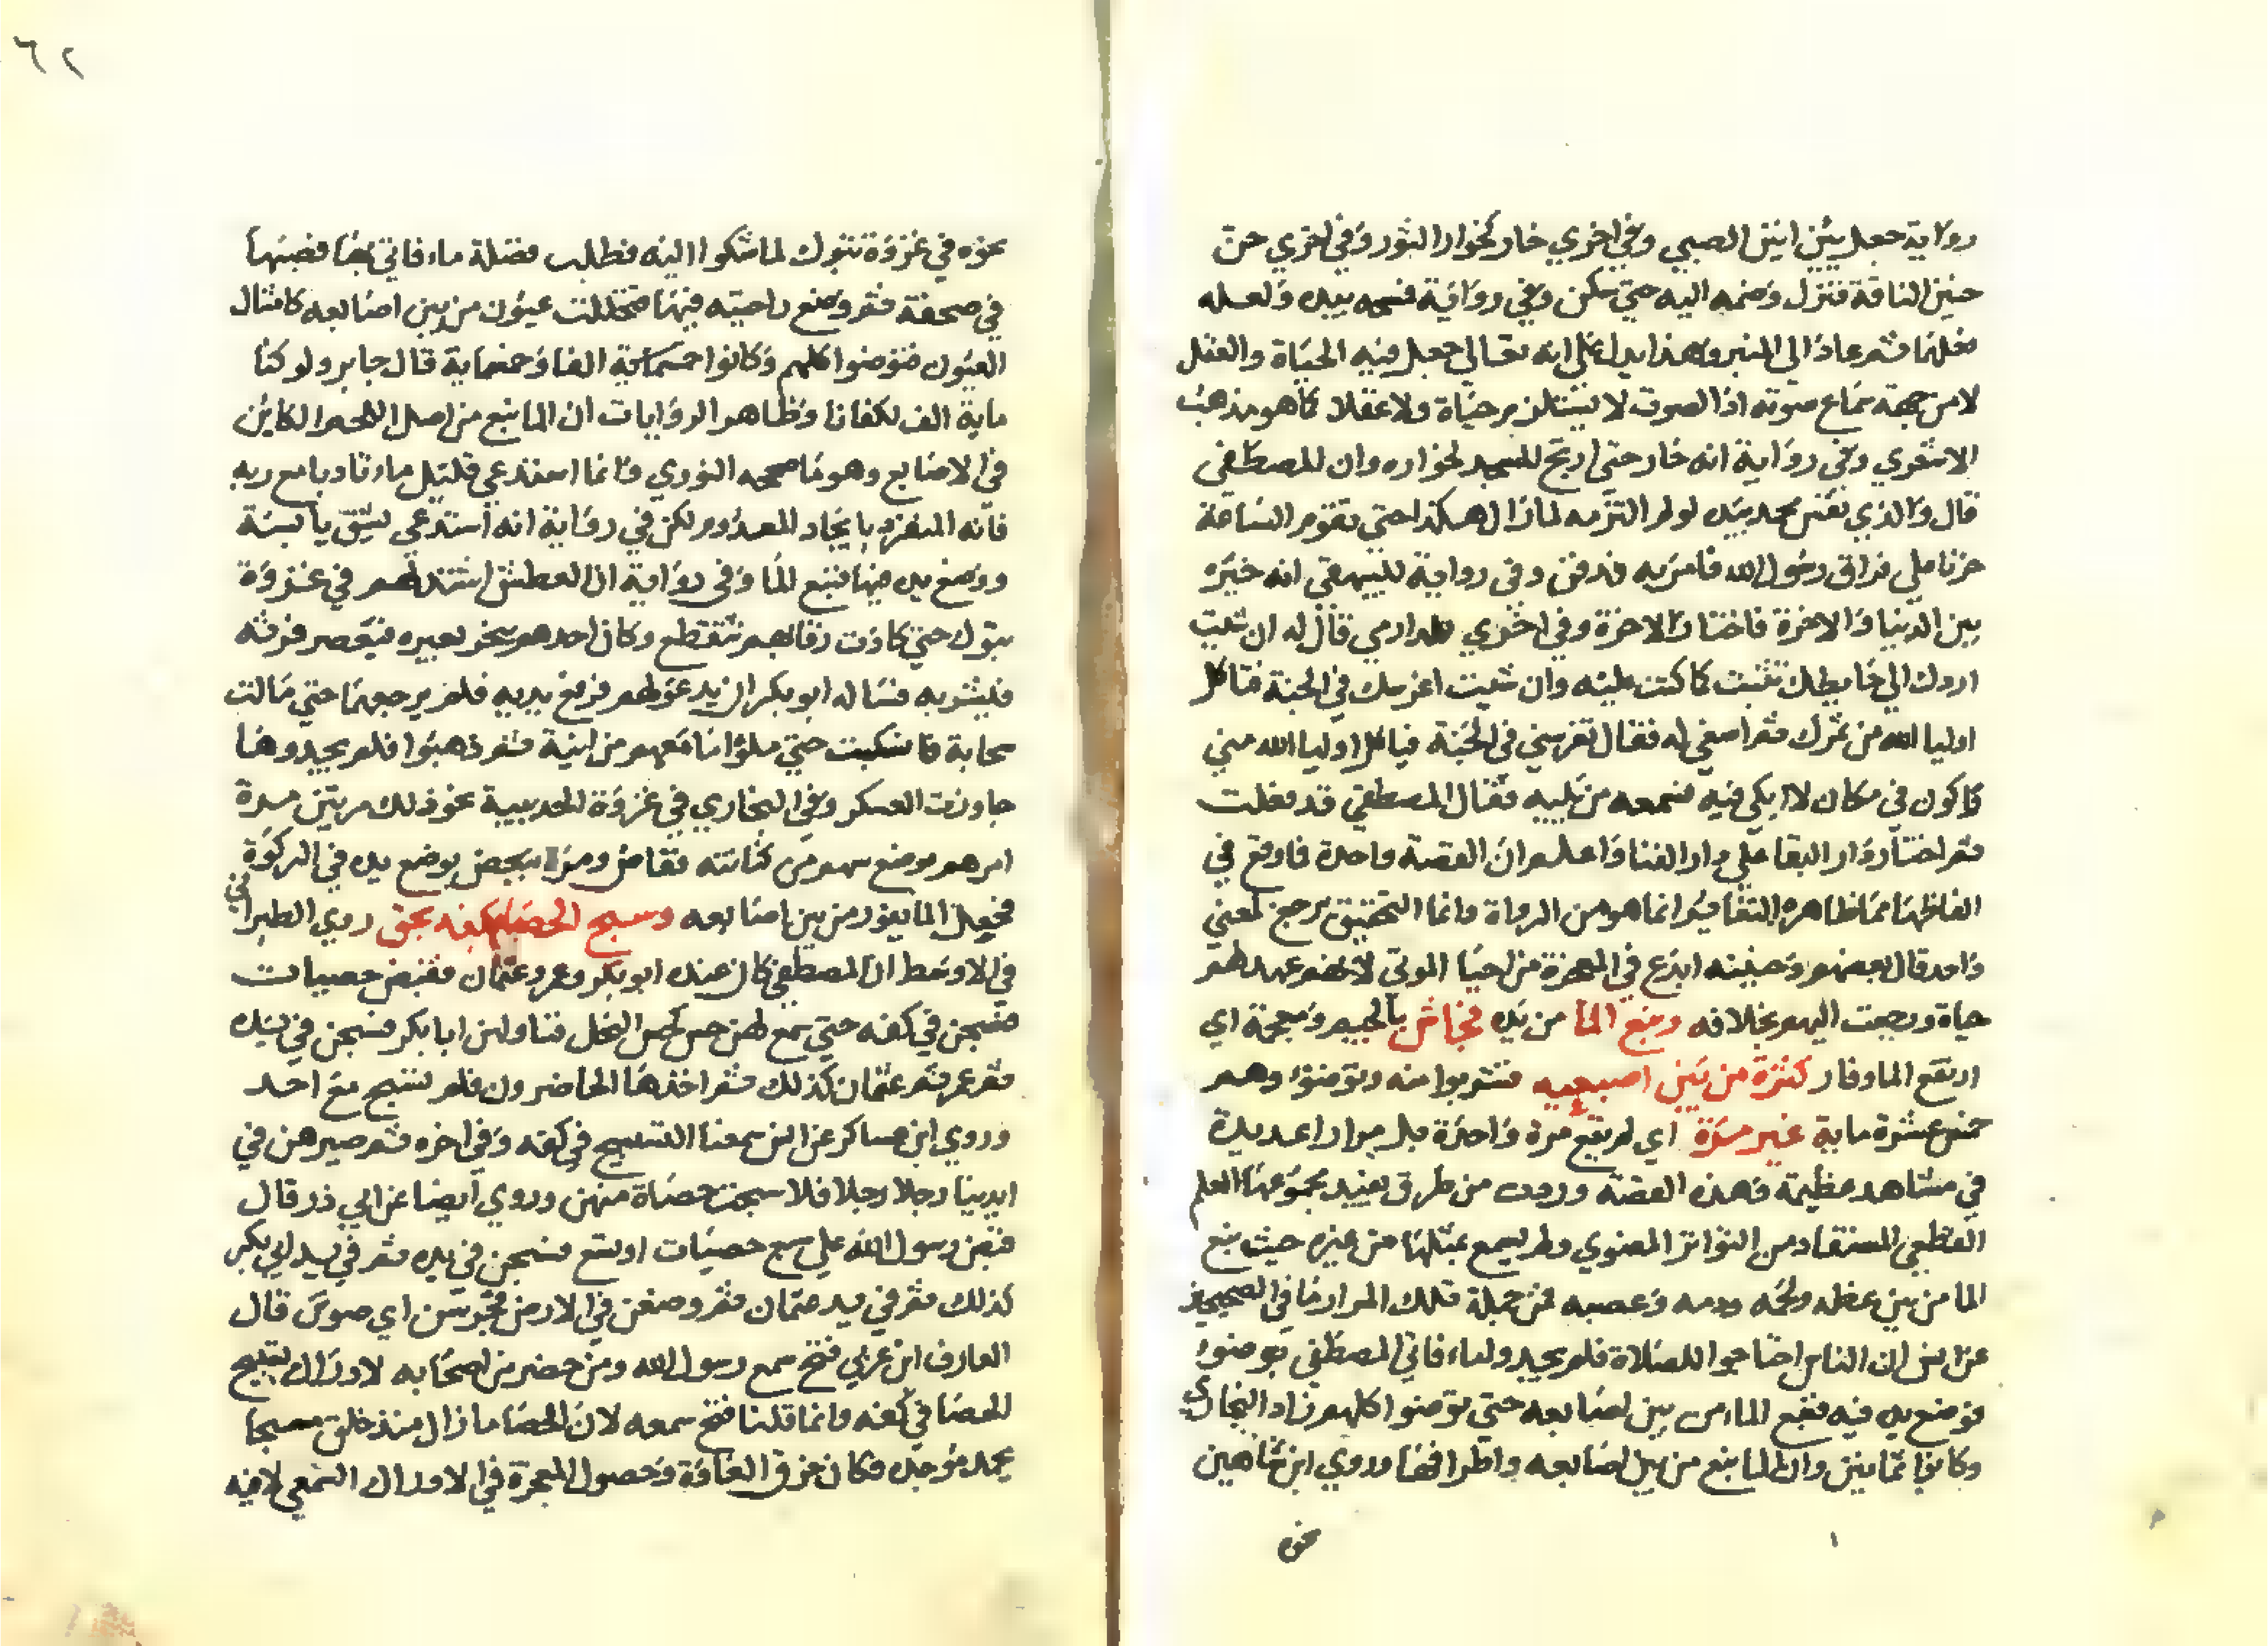 رواية جعل يئن انين الصبي وفي اخري خار كخوار الثور وفي اخري حن
حنين الناقة فنزل وضمه اليه حتي سكن وفي رواية فمسحه بيده ولعله
فعلهما ثم عاد الى المنبر وهذا يدل على انه تعالى جعل فيه الحياة والعقل
لا من جهة سماع صوته اذ الصوت لا يستلزم حياة ولا عقلا كما هو مذهب
الاشعري وفي رواية انه خار حتى ارتج المسجد لخواره وان المصطفى
قال والذي نفس محمد بيده لو لم التزمه لما زال هكذا حتى تقوم الساعة
حزنا على فراق رسول الله فامر به فدفن وفي رواية للبيهقي انه خيره
بين الدنيا والاخرة فاختار الاخرة وفي اخري للدارمي قال له ان شيت
اردك الي حايطك تنبت كما كنت عليه وان شيت اغرسك في الجنة فتاكل
اوليا الله من ثمرك ثم اصغي له فقال تغرسني في الجنة فياكل اوليا الله مني
فاكون في مكان لا ابكي فيه فسمعه من يليه فقال المصطفى قد فعلت
ثم اختار دار البقا على دار الفنا واعلم ان القصة واحدة فاوقع في
الفاظها مما ظاهره التغاير انما هو من الرواة وانما التحقيق يرجع لمعني
واحد قال بعضهم وحنينه ابدع في المعجزة من احيا الموتى لانهم عهد لهم
حياة وبصحت اليهم بخلافه ونبع الما من يده فجاش بالجيم ومعجمة اي
ارتفع الما وفار كثرة من بين اصبعيه فشربوا منه وتوضوا وهم
خمس عشرة ماية غير مرة اي لم يقع مرة واحدة بل مرارا عديدة
في مشاهد عظيمة وهذه القصة وردت من طرق يفيد مجموعها العلم
القطعي المستفاد من التواتر المعنوي ولم يسمع بمثلها من غيره حيث نبع
الما من بين عظمه ولحمه ودمه وعصبه فمن جملة تلك المرار ما في الصحيحين
عن انس ان الناس احتاجوا للصلاة فلم يجدوا ماء فاتي المصطفى بوضوء
فوضع يده فيه فنبع الماء من بين اصابعه حتي توضوا كلهم زاد البخاري
وكانوا ثمانين وان الما نبع من بين اصابعه واطرافها وروي ابن شاهين
نحوه
٦٢
نحوه في غزوة تبوك لما شكوا اليه فطلب فضلة ماء فاتي بها فصبها
في صحفة ثم وضع راحته فيها فتخللت عيون من بين اصابعه كامثال
العيون فتوضوا كلهم وكانوا الفا وخمسماية قال جابر ولو كنا
ماية الف لكفانا وظاهر الروايات ان الما نبع من اصل اللحم الكاين
في الاصابع وهو ما صححه النووي وانما استدعي قليل ماء تادبا مع ربه
فانه المنفرد بايجاد المعدوم لكن في رواية انه استدعي بشن يابسة
ووضع يده فيها فنبع الما وفي رواية ان العطش اشتد لهم في غزوة
تبوك حتي كادت رقابهم تنقطع وكان احدهم ينحر بعيره فيعصر فرثه
فيشربه فساله ابو بكر ان يدعو لهم فرفع يديه فلم يرجعهما حتي مالت
سحابة فانسكبت حتي ملؤا ما معهم من انية ثم ذهبوا فلم يجدوها
جاوزت العسكر وفي البخاري في غزوة الحديبية نحو ذلك مرتين مرة
امرهم بوضع سهم من كنانته ففاض ومرة بوضع يده في الركوة
فجعل الما يفور من بين اصابعه وسبح الحصا بكفه بحق روي الطبراني
في الاوسط ان المصطفى كان عنده ابو بكر وعمر وعثمان فقبض حصيات
فسبحن في كفه حتي سمع لهن حس كحس النحل فناولهن ابا بكر فسبحن في يده
ثم عمر ثم عثمان كذلك ثم اخذها الحاضرون فلم تسبح مع احد
وروي ابن عساكر عن انس سمعنا التسبيح في كفه وفي اخره ثم صيرهن في
ايدينا رجلا رجلا فلا سبحت حصاة منهن وروي ايضا عن ابي ذر قال
قبض رسول الله علي سبع حصيات او تسع فسبحن في يده ثم في يد ابي بكر
كذلك ثم في يد عثمان ثم وضعن في الارض فخرسن اي صوت قال
العارف ابن عربي فتح سمع رسول الله ومن حضر من اصحابه لادراك تسبيح
الحصا في كفه وانما قلنا فتح سمعه لان الحصا ما زال منذ خلق مسبحا
بحمد موجده فكان خرق العادة وحصول المعجزة في الادراك السمعي لا فيه